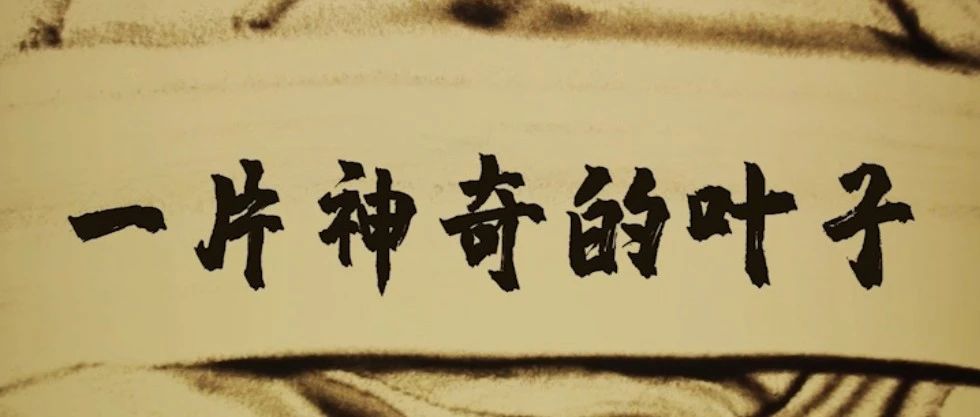 一片神奇的叶子